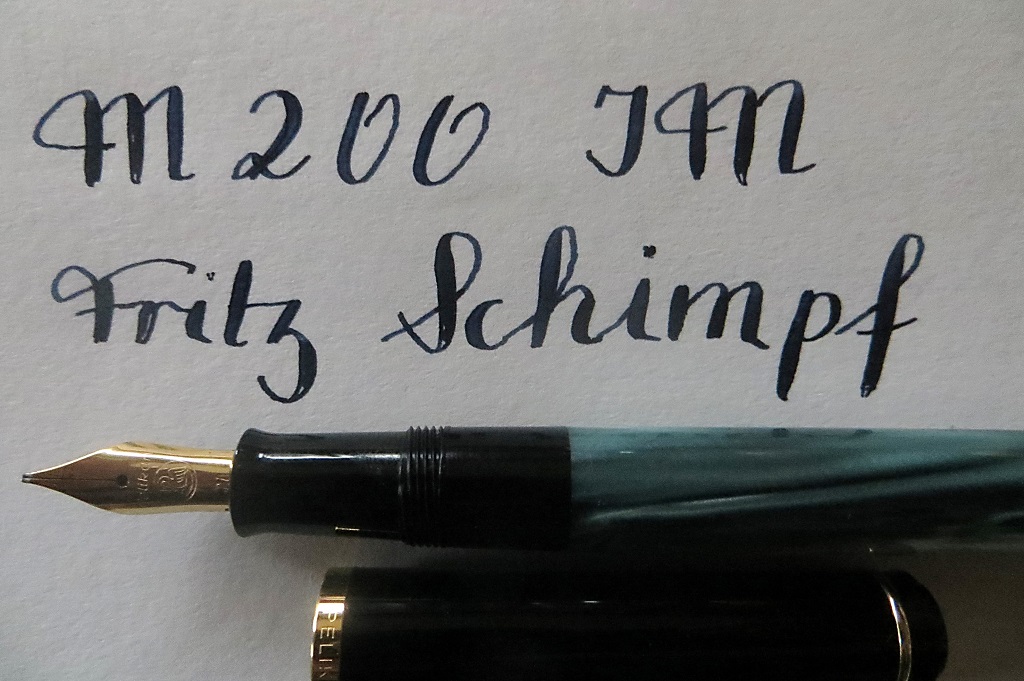 M 200 IM
Fritz Schimpf
PELIK